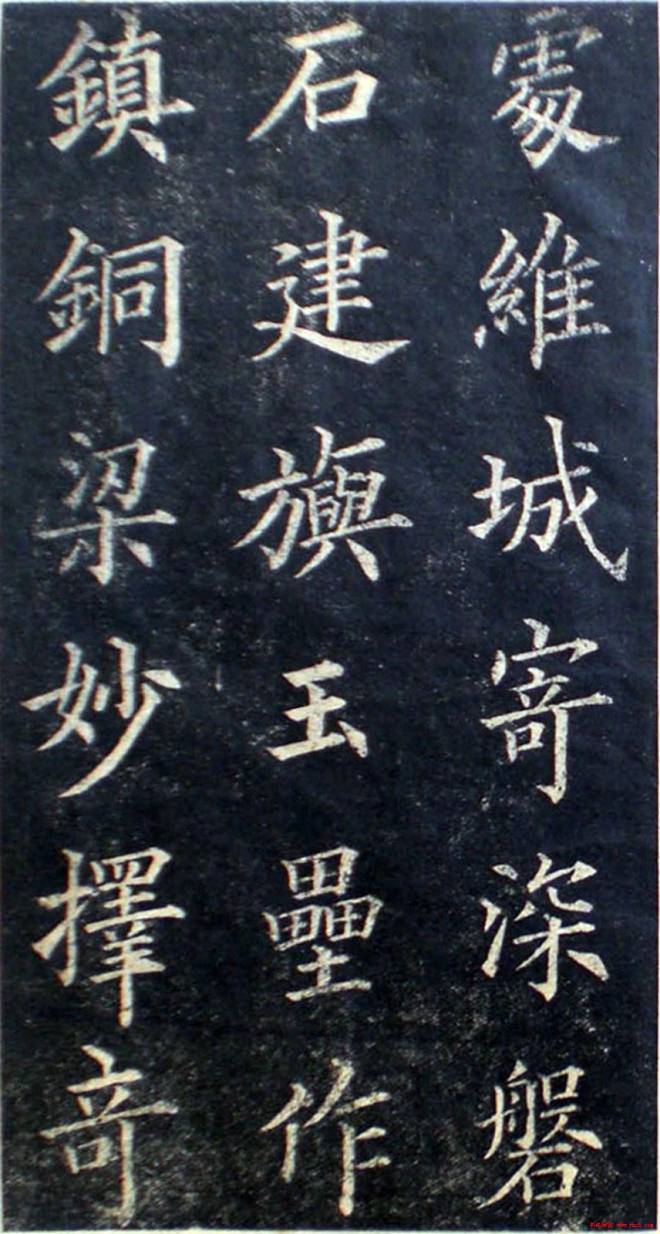 處維城寄深磐
石建旟玉壘作
鎮銅梁妙擇竒